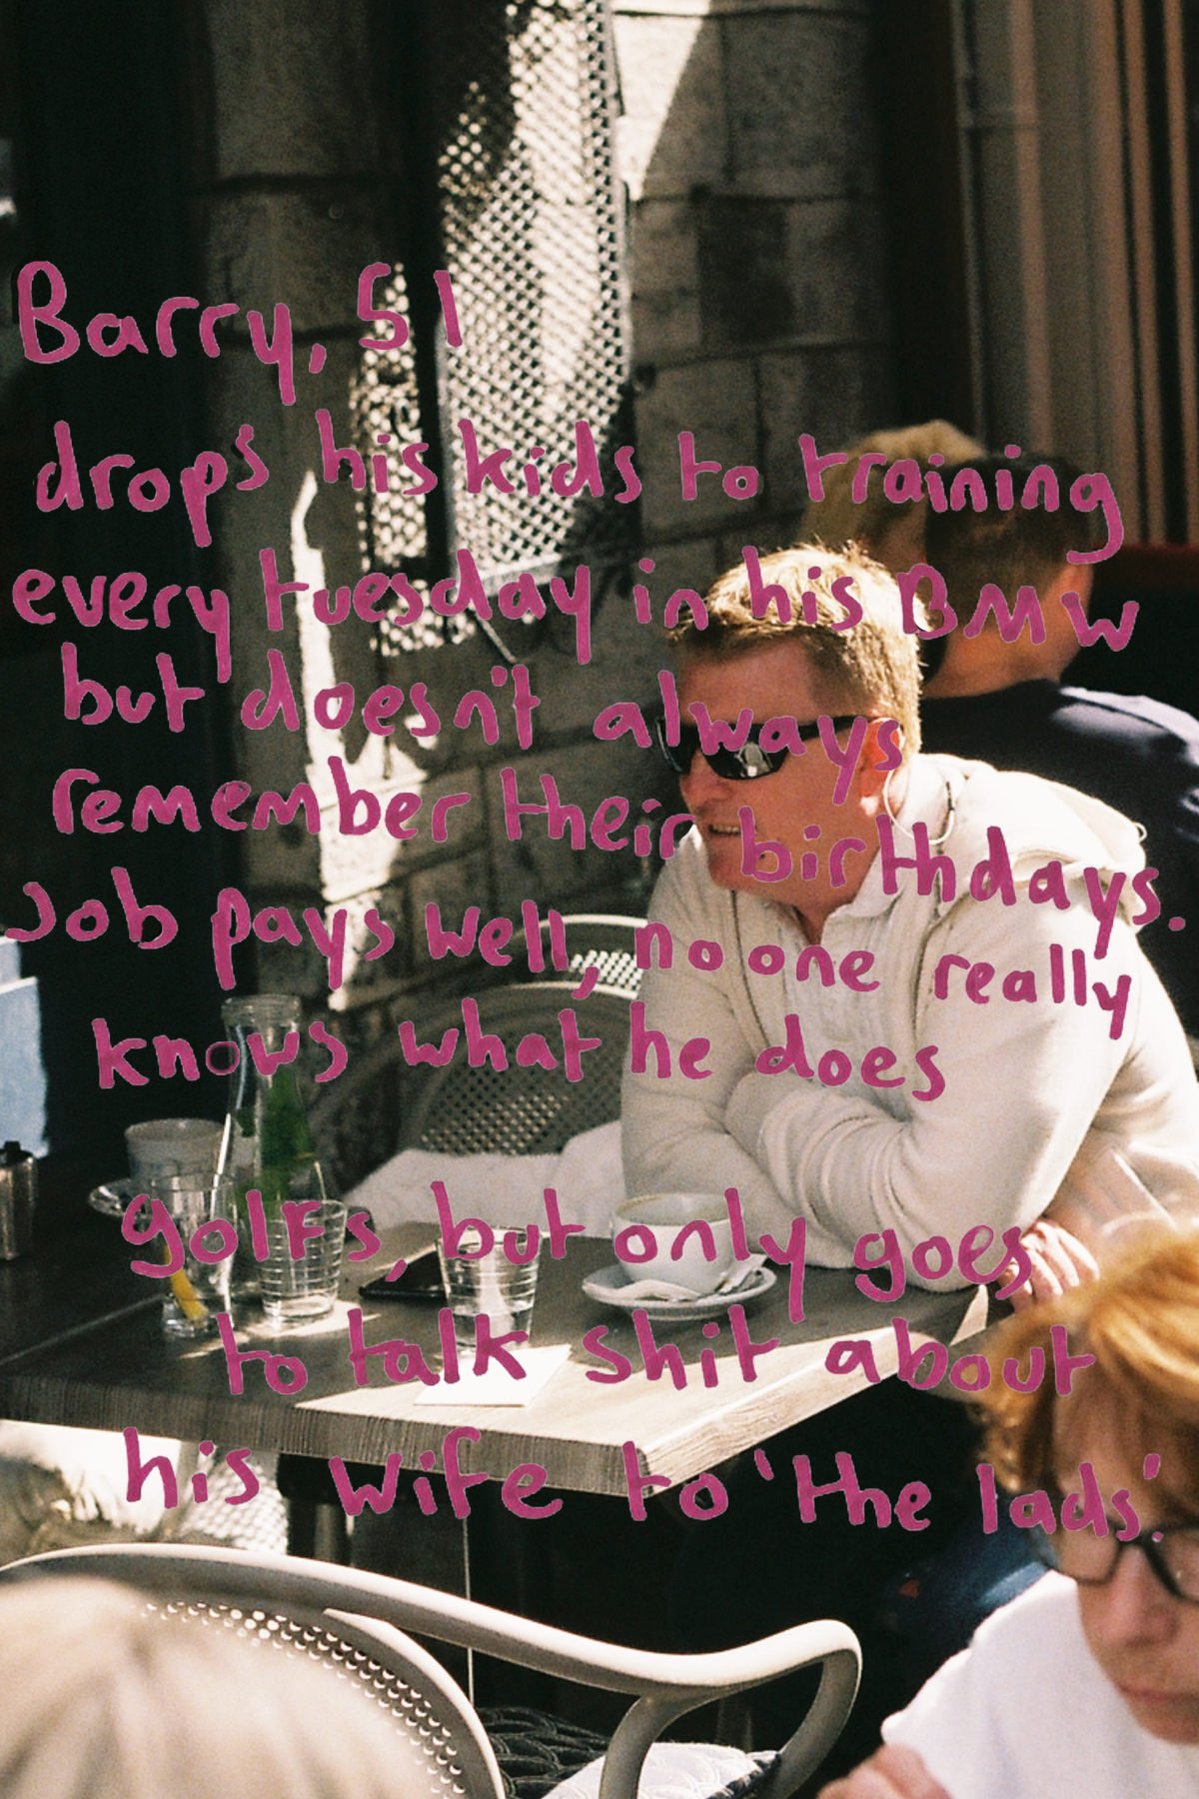 Barry, 51
drops his kids to training
every tuesday in his BMW
but doesn't always
remember their birthdays.
Job pays well, no one really
knows what he does
golfs, but only goes
to talk shit about
his wife to 'the lads'.